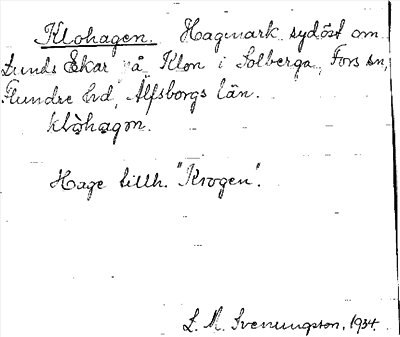 Klohagen. Hagmark sydöst om
Lunds Ekar på Klon i Solberga, Fors sn,
Flundre hrd, Älfsborgs län.
klòhagən.
Hage tillh. "Krogen".
L. M. Svenungsson, 1934.